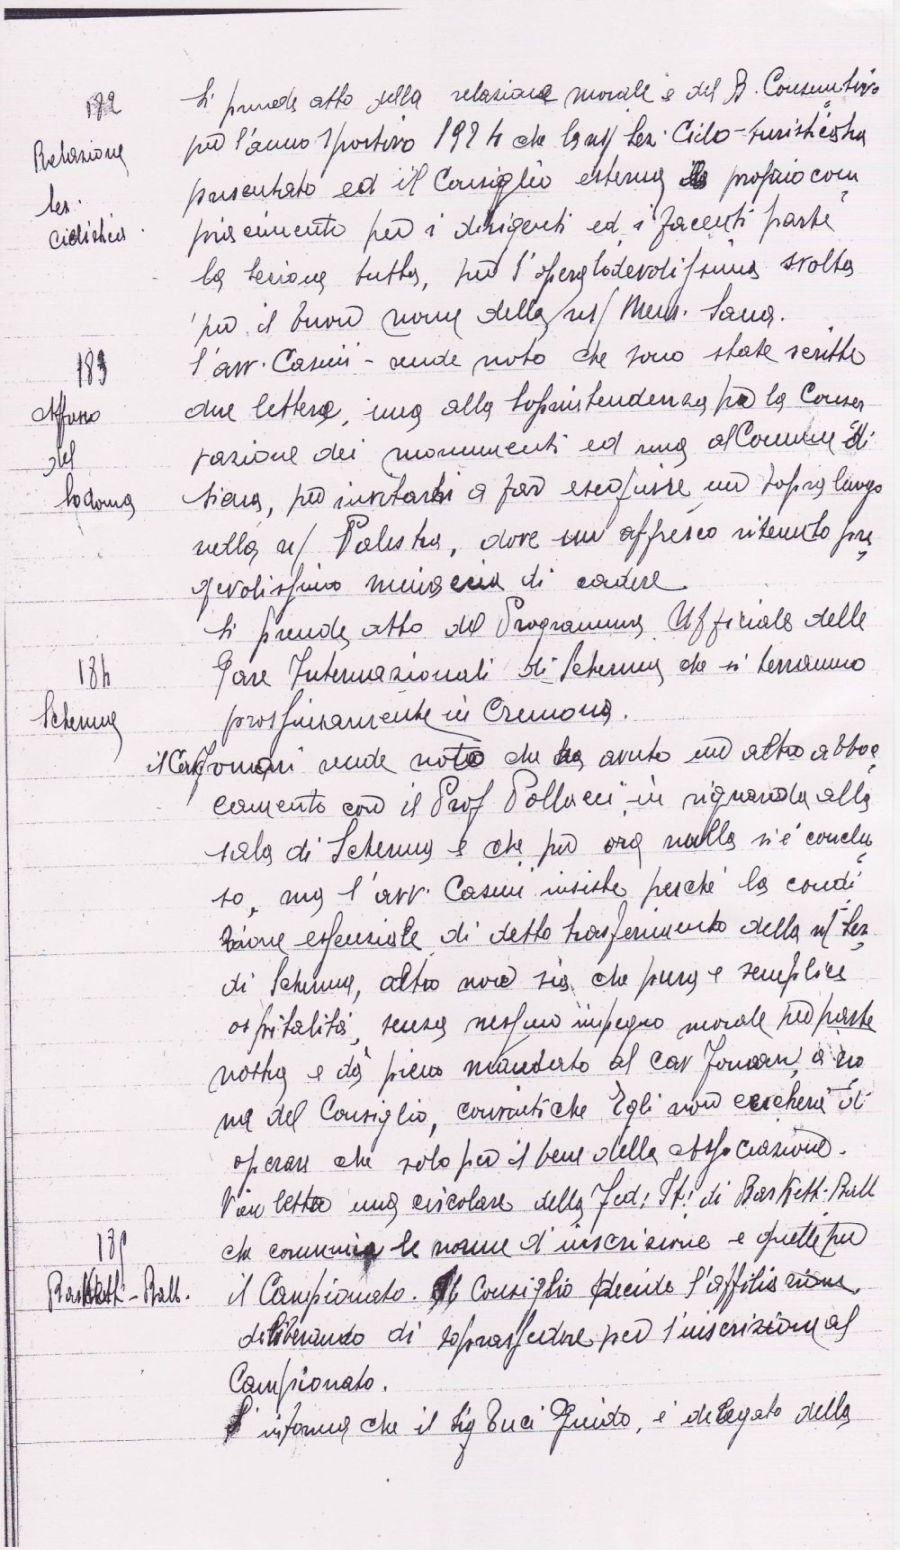 182
Relazione
Sez.
Ciclistica.
Si prende atto della relazione morale e del B. Consuntivo
per l'anno sportivo 1924 che la n/ Sez. Ciclo-turistica ha
presentato ed il Consiglio esterna il proprio com
piacimento per i dirigenti ed i facenti parte
la sezione tutta, per l'opera lodevolissima svolta
per il buon nome della n/ Mens. Sana.
183
Affresco
del
Sodoma
L'avv. Casini - rende noto che sono state scritte
due lettere, una alla Soprintendenza per la Conser
vazione dei monumenti ed una al Comune di
Siena, per invitarli a far eseguire un sopraluogo
nella n/ Palestra, dove un affresco ritenuto pre
gevolissimo minaccia di cadere.
184
Scherma
Si prende atto del Programma Ufficiale delle
Gare Internazionali di Scherma che si terranno
prossimamente in Cremona.
il Cav rende noto che ha avuto un altro abboc
camento con il Prof Pollacci in riguardo alla
sala di Scherma e che per ora nulla si è conclu
so, ma l'avv. Casini insiste perché la condi
zione essenziale di detto trasferimento della n/ Sez
di Scherma, altro non sia che pura e semplice
ospitalità, senza nessun impegno morale per parte
nostra e dà pieno mandato al cav a no
me del Consiglio, convinti che Egli non cercherà di
operare che solo per il bene della Associazione.
185
Baskett-Ball.
Vien letta una circolare della Fed. It. di Baskett-Ball
che comunica le norme d'iscrizione e quelle per
il Campionato. Il Consiglio decide l'affiliazione
deliberando di soprassedere per l'iscrizione al
Campionato.
S'informa che il Sig Guido, è delegato della